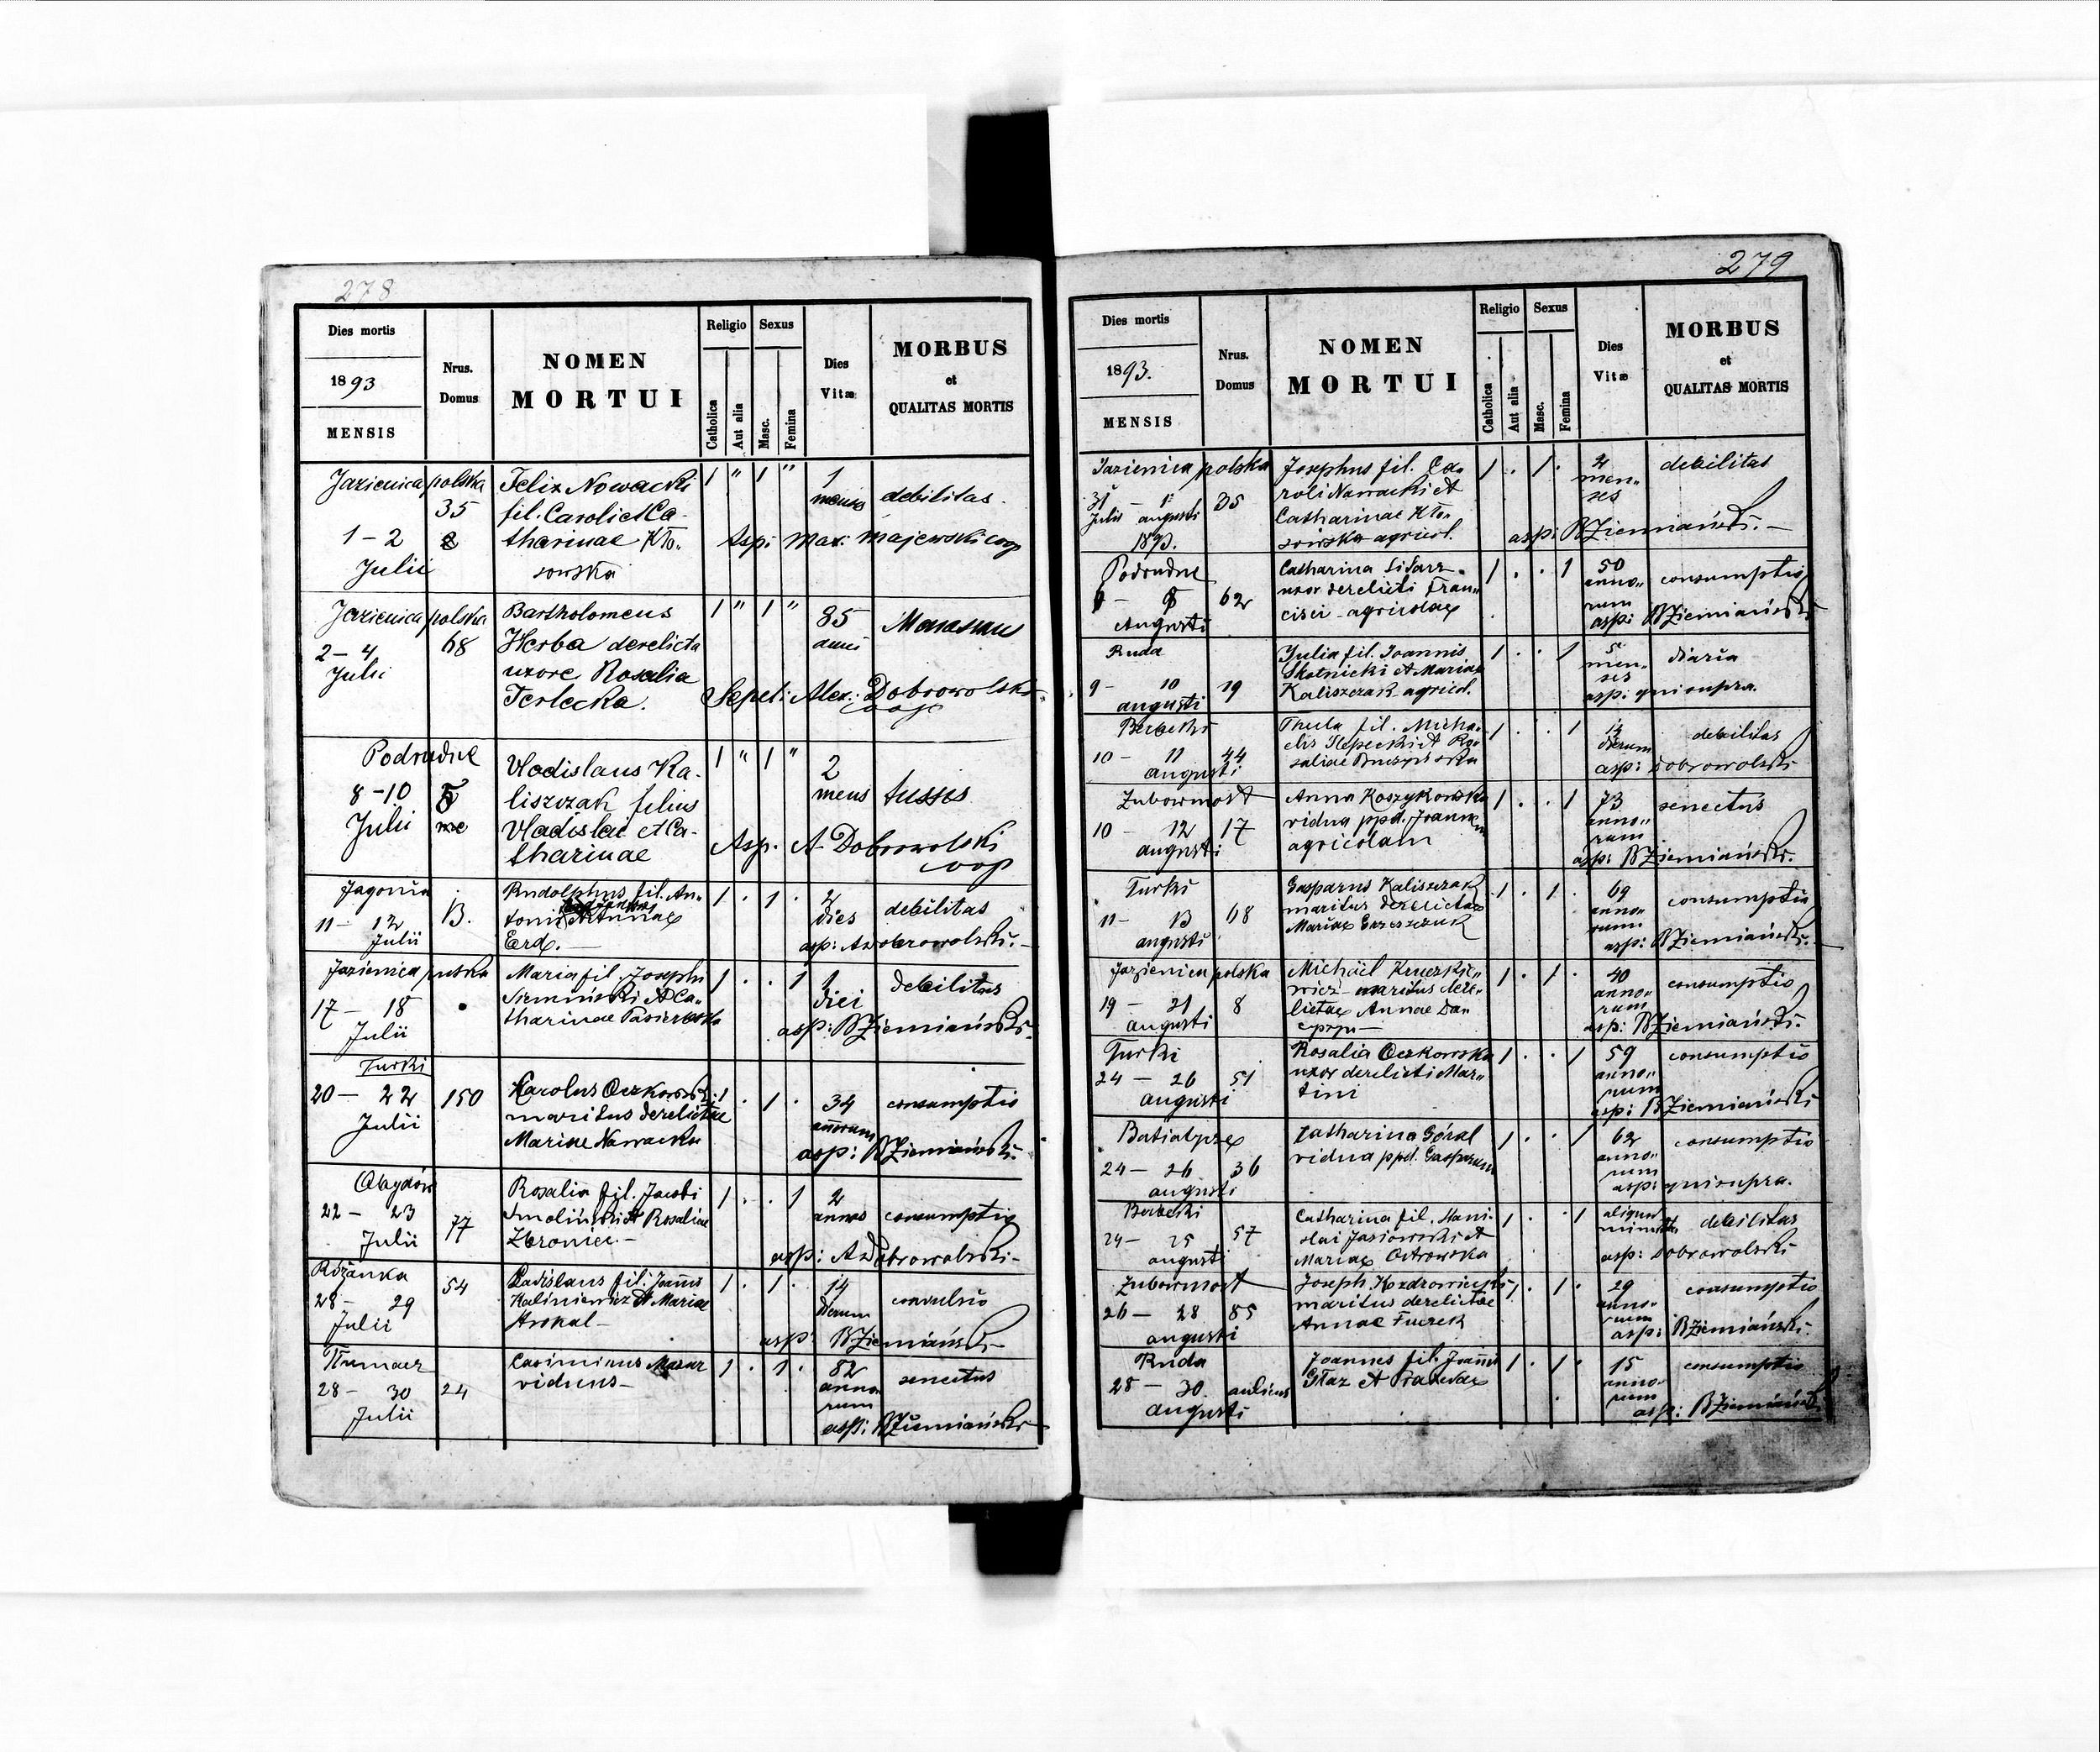 278
Dies mortis
1893
MENSIS
Nrus.
Domus
NOMEN
MORTUI
Religio
Catholica
Aut alia
Sexus
Masc.
Femina
Dies
Vitæ
MORBUS
et
QUALITAS MORTIS
Jazienica polska
35
1-2
Julii
Felix Nowacki
fil. Caroli et Ca-
tharinae Kło-
sowska
1 " 1 "
1
mensis
debilitas
Asp: Max: Majewski coop
Jazienica polska
68
2-4
Julii
Bartholomeus
Herba derelicta
uxore Rosalia
Terlecka.
1 " 1 "
85
anni
Marasmus
Sepel: Alex: Dobrowolski
coop
8-10
Julii
Vladislaus Ka-
liszczak filius
Vladislai et Ca-
tharinae
1 " 1 "
2
mens
tussis
Asp. A Dobrowolski
coop
Jagonia
11- 12
Julii
13.
Rudolphus fil. An-
tonii et Annae
Erd.
1 . 1 .
2
dies
debilitas
asp: A Dobrowolski.
Jazienica polska
17- 18
Julii
Maria fil. Josephi
Siemiński et Ca-
tharinae
1 . . 1
1
diei
debilitas
asp: BZiemiański.
Turki
20- 22
Julii
150
Karolus Oczkowski
maritus derelictae
Mariae Nawacka
1 . 1 .
34
annorum
consumptio
asp: BZiemiański.
Obydów
22- 23
Julii
77
Rosalia fil. Jacobi
Smoliński et Rosaliae
1 . . 1
2
annos
consumptio
asp: A Dobrowolski
Różanka
28- 29
Julii
54
Ladislaus fil. Joannis
Kaliniewicz et Mariae
1 . 1 .
14
dierum
convulsio
asp: BZiemiański
Tłumacz
28- 30
Julii
24
Casimirus Mazur
viduus
1 . 1 .
82
anno
rum
senectus
asp: BZiemiański
279
Dies mortis
1893.
MENSIS
Nrus.
Domus
NOMEN
MORTUI
Religio
Catholica
Aut alia
Sexus
Masc.
Femina
Dies
Vitæ
MORBUS
et
QUALITAS MORTIS
Jazienica polska
31 - 1
Julii augusti
1893.
35
Josephus fil. Ca-
roli Nawacki et
Catharinae Kło-
sowska agricol.
1 . 1 .
2
men-
ses
debilitas
asp: BZiemiański.
Augusti
62
Catharina
uxor derelicti Fran-
cisci agricolae
1 . . 1
50
anno-
rum
consumptio
asp: BZiemiański
Ruda
9- 10
augusti
19
Julia fil. Joannis
Skotnicki et Mariae
Kaliszczak agricol.
1 . . 1
5
men-
ses
diaria
asp: qui supra.
10- 11
augusti
44
Thecla fil. Micha-
elis Slepecki et Ro-
saliae
1 . . 1
14
dierum
debilitas
asp: Dobrowolski
Zubowmost
10- 12
augusti
17
Anna Koszykowska
vidua ppd. Joannem
agricolam
1 . . 1
73
anno-
rum
senectus
asp: BZiemiański.
Turki
11- 13
augusti
68
Gasparus Kaliszczak
maritus derelictae
Mariae
1 . 1 .
69
anno-
rum
consumptio
asp: BZiemiański.
Jazienica polska
19- 21
augusti
8
Michael Kruczkie-
wicz maritus dere-
lictae Annae Dan
1 . 1 .
40
anno-
rum
consumptio
asp: BZiemiański.
Turki
24- 26
augusti
51
Rosalia Oczkowska
uxor derelicti Mar-
tini
1 . . 1
59
anno-
rum
consumptio
asp: BZiemiański
24- 26
augusti
36
Catharina Góral
vidua ppd. Gasparum
1 . . 1
62
anno-
rum
consumptio
asp: qui supra.
24- 25
augusti
57
Catharina fil. Stani-
slai Jasiowski et
Mariae Ostrowska
1 . . 1
debilitas
asp: Dobrowolski
Zubowmost
26- 28
augusti
85
Joseph
maritus derelictae
Annae
1 . 1 .
29
anno-
rum
consumptio
asp: BZiemiański.
Ruda
28- 30.
augusti
Joannes fil. Joannis
1 . 1 .
15
anno-
rum
consumptio
asp: BZiemiański